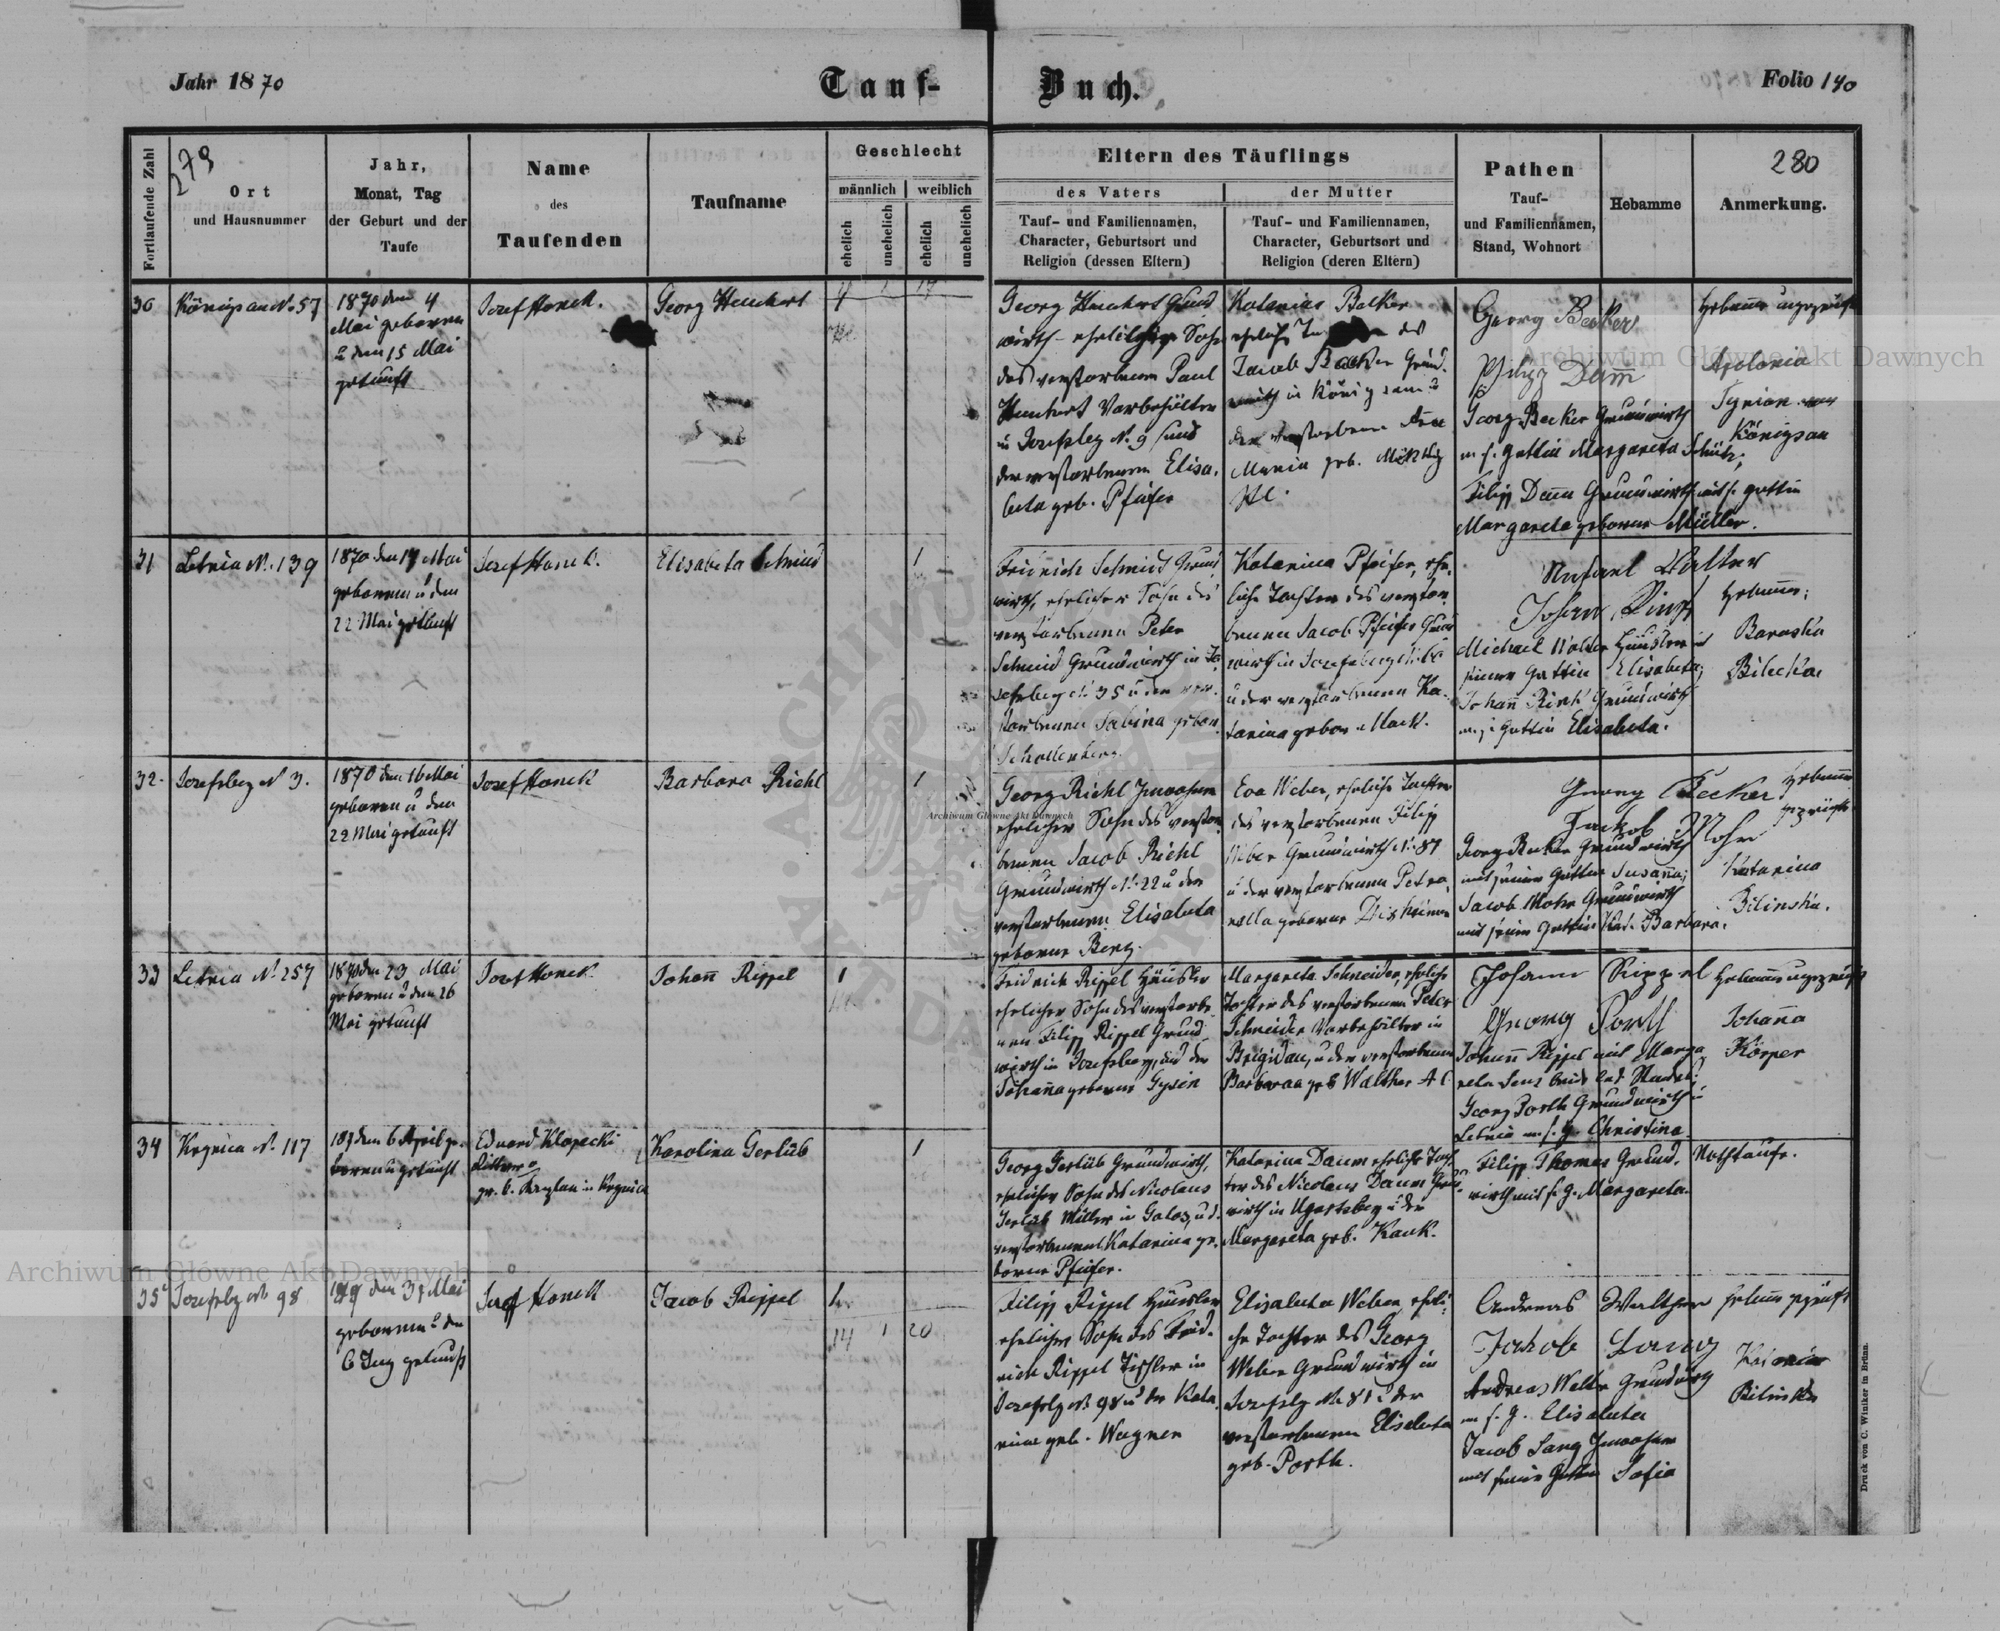 Jahr 1870
Tauf-
Buch.
Folio 140
Fortlaufende Zahl
279
Ort
und Hausnummer
Jahr,
Monat, Tag
der Geburt und der
Taufe
Name
des
Taufenden
Taufname
Geschlecht
männlich
weiblich
ehelich
unehelich
ehelich
unehelich
Eltern des Täuflings
des Vaters
der Mutter
Tauf- und Familiennamen,
Character, Geburtsort und
Religion (dessen Eltern)
Tauf- und Familiennamen,
Character, Geburtsort und
Religion (deren Eltern)
Pathen
Tauf-
und Familiennamen,
Stand, Wohnort
Hebamme
280
Anmerkung.
30
Königsau No 57
1870 den 4
Mai geboren
u den 15 Mai
getauft
Josef Honek.
Georg Heuchert
Georg Heuchert Grund
wirth - ehelicher Sohn
des verstorbenen Paul
Heuchert Vorbehälter
in Josefsbg N. 9 und
der verstorbenen Elisa.
beta geb. Pfeifer
Katarina Becker
eheliche des
Jacob Becker Grund.
wirth in Königsau u
der verstorbenen
Maria geb.
Georg Becker
Philipp Damm
Georg Becker Grundwirth
m s. Gattin Margareta Schütz;
Filipp Damm Grundwirth mit s. Gattin
Margareta geborene Müller.
Hebamme ungeprüft
Apolonia
Königsau
31
Letnia N. 139
1870 den 17 Mai
geboren u den
22 Mai getauft
Josef Honek.
Elisabeta Schmid
1
Fridrich Schmid Grund
wirth, ehelicher Sohn des
verstorbenen Peter
Schmid Grundwirth in Jo
sefsberg N. 35 u der ver.
storbenen Sabina gebor.
Katarina Pfeifer, ehe.
liche Tochter des verstor
benen Jacob Pfeifer Grund
wirth in Josefsberg
u der verstorbenen Ka.
tarina gebor. Mack.
Walter
Johann Rink
Michael Walter Häusler mit
seiner Gattin Elisabeta;
Johann Rink Grundwirth
m. s. Gattin Elisabeta.
Hebamme;
Baraska
Bilecka
32.
Josefsberg N 3.
1870 den 16 Mai
geboren u den
22 Mai getauft
Josef Honek
Barbara Riehl
1
Georg Riehl Inwohner
ehelicher Sohn des verstor.
benen Jacob Riehl
Grundwirth N. 22 u der
verstorbenen Elisabeta
geborne Berg.
Eva Weber, eheliche Tochter
des verstorbenen Filipp
Weber Grundwirth N. 87
u der verstorbenen Petro,
nella geborne
Georg Becker
Jackob Mohr
Georg Becker Grundwirth
mit seiner Gattin Susanna;
Jacob Mohr Grundwirth
mit seiner Gattin Barbara.
Hebamme
geprüft
Katarina
Bilinska.
33
Letnia N. 257
1870 den 23 Mai
geboren u den 26
Mai getauft
Josef Honek.
Johann Rippel
1
Fridrich Rippel Häusler
ehelicher Sohn des verstorbe.
nen Filipp Rippel Grund
wirth in Josefsberg, und der
Johanna geborne Gysin
Margareta Schneider, eheliche
Tochter des verstorbenen Peter
Schneider Vorbehälter in
Brigidau, u der verstorbenen
Barbara geb Walther
Johann Rippel
Georg Porth
Johann Rippel mit Marga
reta
Georg Porth Grundwirth in
Letnia m. s. G. Christina
Hebamme ungeprüft
Johanna
Körper
34
Krynica N. 117
187 den 6 April ge.
boren u getauft
Eduard Klopecki
gr. k. Kaplan in Krynica
Karolina Gerlüb
1
Georg Gerlüb Grundwirth,
ehelicher Sohn des Nicolaus
Gerlüb Müller in u d.
verstorbenen Katarina ge.
borne Pfeifer.
Katarina Daum eheliche Toch
ter des Nicolaus Daum Grund
wirth in Ugartsberg u der
Margareta geb. Kauk.
Filipp Thomas Grund.
wirth mit s. G. Margareta.
Nothtaufe.
35
Josefsbg No 98
den 31 Mai
geboren u den
6 Juny getauft
Josef Honek
Jacob Rippel
1.
14 1 20
Filipp Rippel Häusler
ehelicher Sohn des Frid.
rich Rippel Tischler in
Josefsbg N. 98 u der Kata
rina geb. Wagner
Elisabeta Weber, eheli
che Tochter des Georg
Weber Grundwirth in
Josefsbg No 81 u der
verstorbenen Elisabeta
geb. Porth.
Andreas Walther
Jakob Lang
Andreas Walter Grundwirth
m s. G. Elisabeta
Jacob Lang Inwohner
mit seiner Gattin Sofia
Hebamme geprüft
Katarina
Bilinska
Druck von C. Winiker in Brünn.
Archiwum Główne Akt Dawnych
Archiwum Główne Akt Dawnych
Archiwum Główne Akt Dawnych